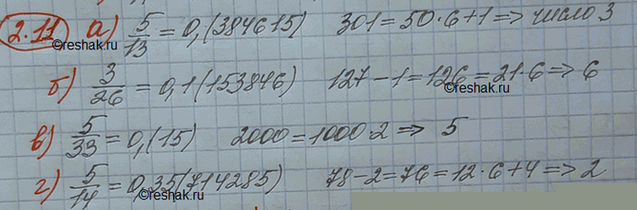 2.11 а) 5/13 = 0,(384615) 301 = 50·6+1 => число 3
б) 3/26 = 0,1(153846) 127-1 = 126 = 21·6 => 6
в) 5/33 = 0,(15) 2000 = 1000·2 => 5
г) 5/14 = 0,35(714285) 78-2 = 76 = 12·6+4 => 2
©reshak.ru
©reshak.ru
©reshak.ru
©reshak.ru